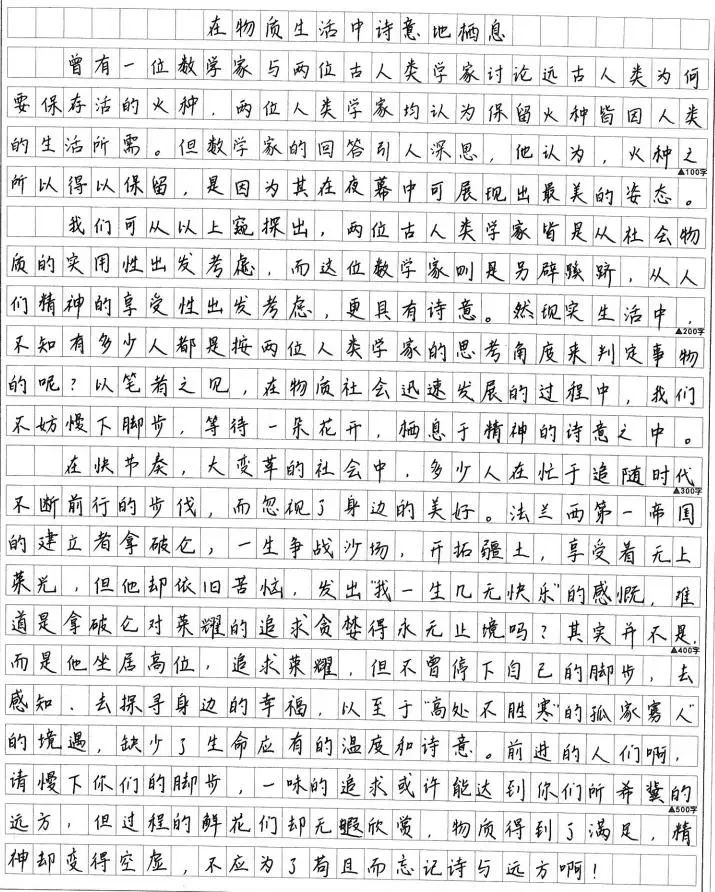 在物质生活中诗意地栖息
曾有一位数学家与两位古人类学家讨论远古人类为何
要保存活的火种，两位人类学家均认为保留火种皆因人类
的生活所需。但数学家的回答引人深思，他认为，火种之
▲100字
所以得以保留，是因为其在夜幕中可展现出最美的姿态。
我们可从以上窥探出，两位古人类学家皆是从社会物
质的实用性出发考虑，而这位数学家则是另辟蹊跻，从人
们精神的享受性出发考虑，更具有诗意。然现实生活中，
▲200字
不知有多少人都是按两位人类学家的思考角度来判定事物
的呢？以笔者之见，在物质社会迅速发展的过程中，我们
不妨慢下脚步，等待一朵花开，栖息于精神的诗意之中。
在快节奏，大变革的社会中，多少人在忙于追随时代
▲300字
不断前行的步伐，而忽视了身边的美好。法兰西第一帝国
的建立者拿破仑，一生争战沙场，开拓疆土，享受着无上
荣光，但他却依旧苦恼，发出“我一生几无快乐”的感慨，难
道是拿破仑对荣耀的追求贪婪得永无止境吗？其实并不是，
▲400字
而是他坐居高位，追求荣耀，但不曾停下自己的脚步，去
感知、去探寻身边的幸福，以至于“高处不胜寒”的孤家寡人”
的境遇，缺少了生命应有的温度和诗意。前进的人们啊，
请慢下你们的脚步，一味的追求或许能达到你们所希冀的
▲500字
远方，但过程的鲜花们却无暇欣赏，物质得到了满足，精
神却变得空虚，不应为了苟且而忘记诗与远方啊！